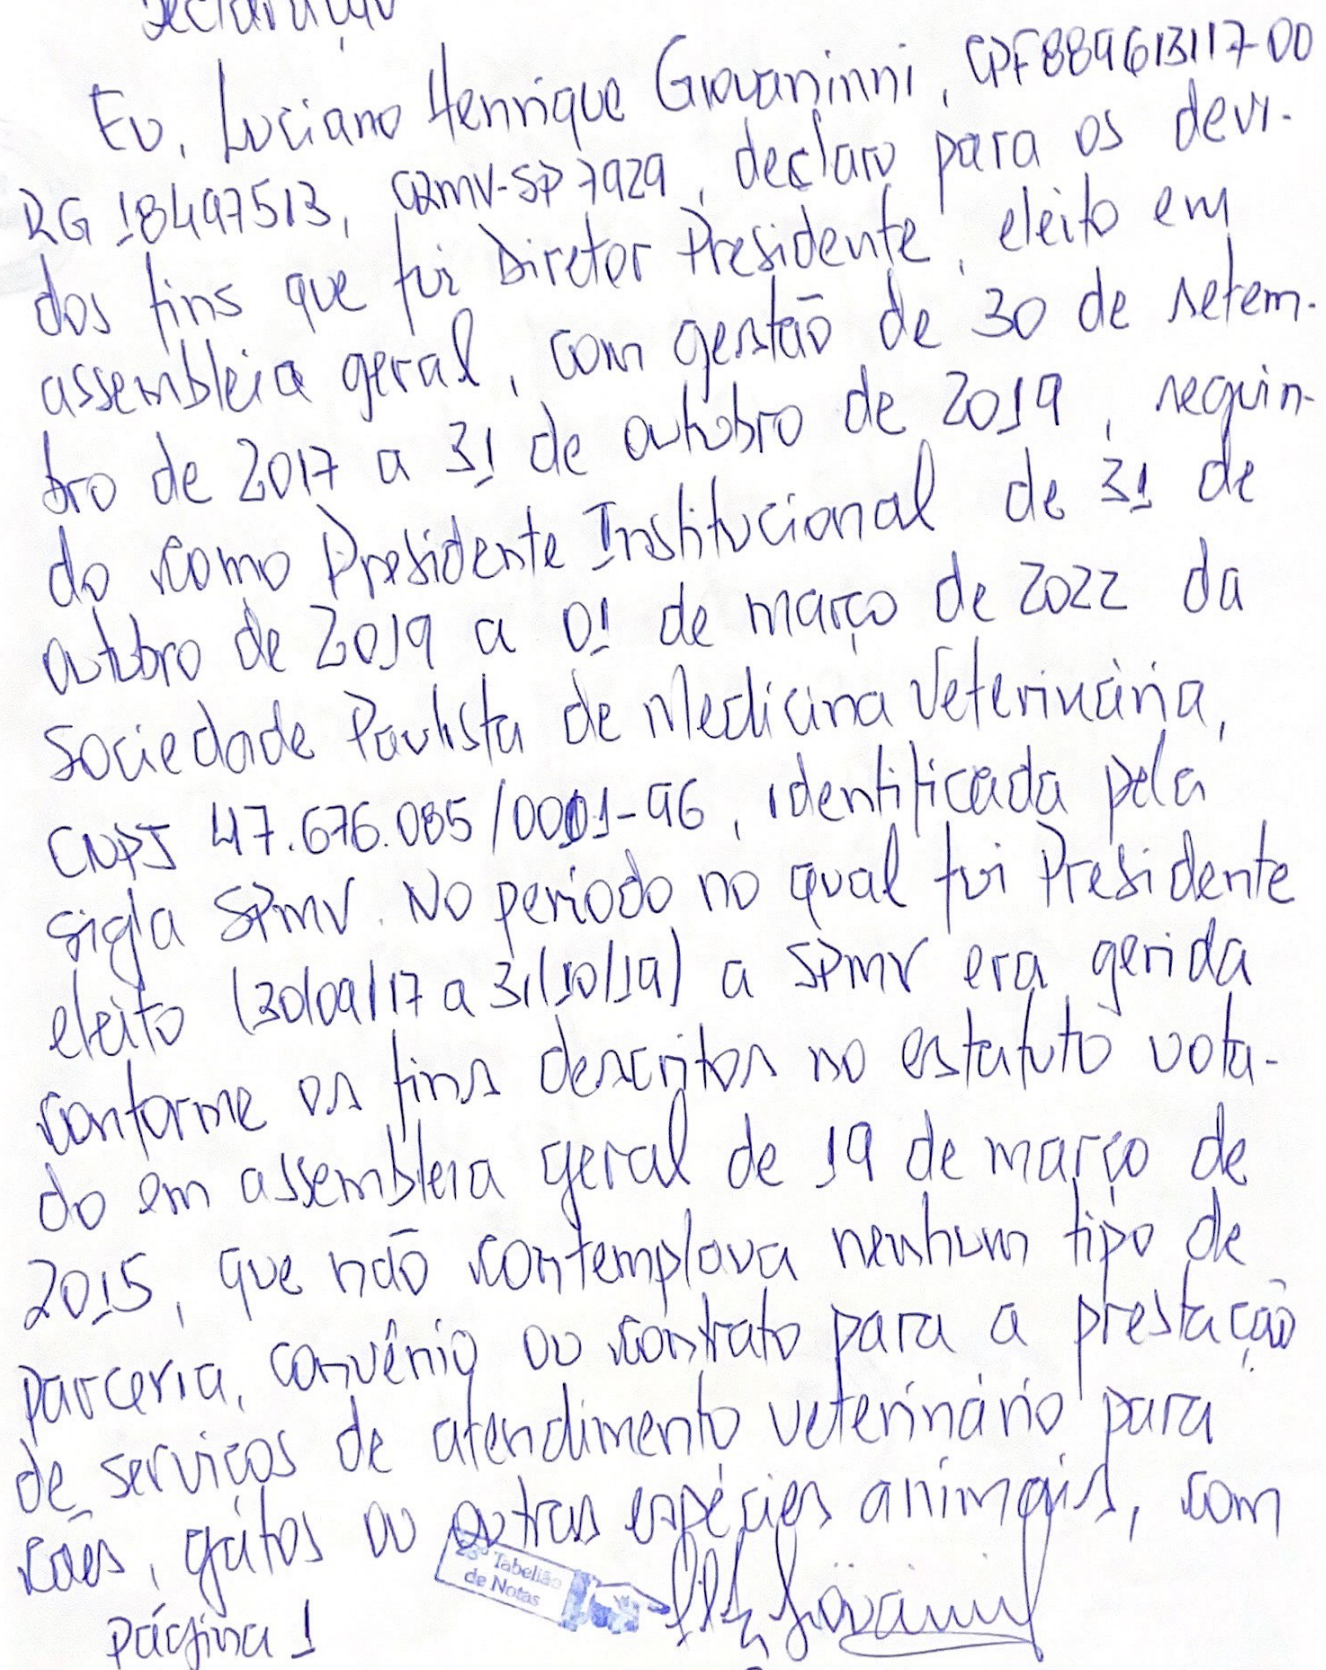 Declaração
Eu, Luciano Henrique Giovaninni, CPF 889613117-00
RG 18497513, CRMV-SP 7929, declaro para os devi-
dos fins que fui Diretor Presidente, eleito em
assembleia geral, com gestão de 30 de setem-
bro de 2017 a 31 de outubro de 2019, seguin-
do como Presidente Institucional de 31 de
outubro de 2019 a 01 de março de 2022 da
Sociedade Paulista de Medicina Veterinária,
CNPJ 47.676.085/0001-96, identificada pela
sigla SPMV. No período no qual fui Presidente
eleito (30/09/17 a 31/10/19) a SPMV era gerida
conforme os fins descritos no estatuto vota-
do em assembleia geral de 19 de março de
2015, que não contemplava nenhum tipo de
parceria, convênio ou contrato para a prestação
de serviços de atendimento veterinário para
cães, gatos ou outras espécies animais, com
23º Tabelião
de Notas
Página 1